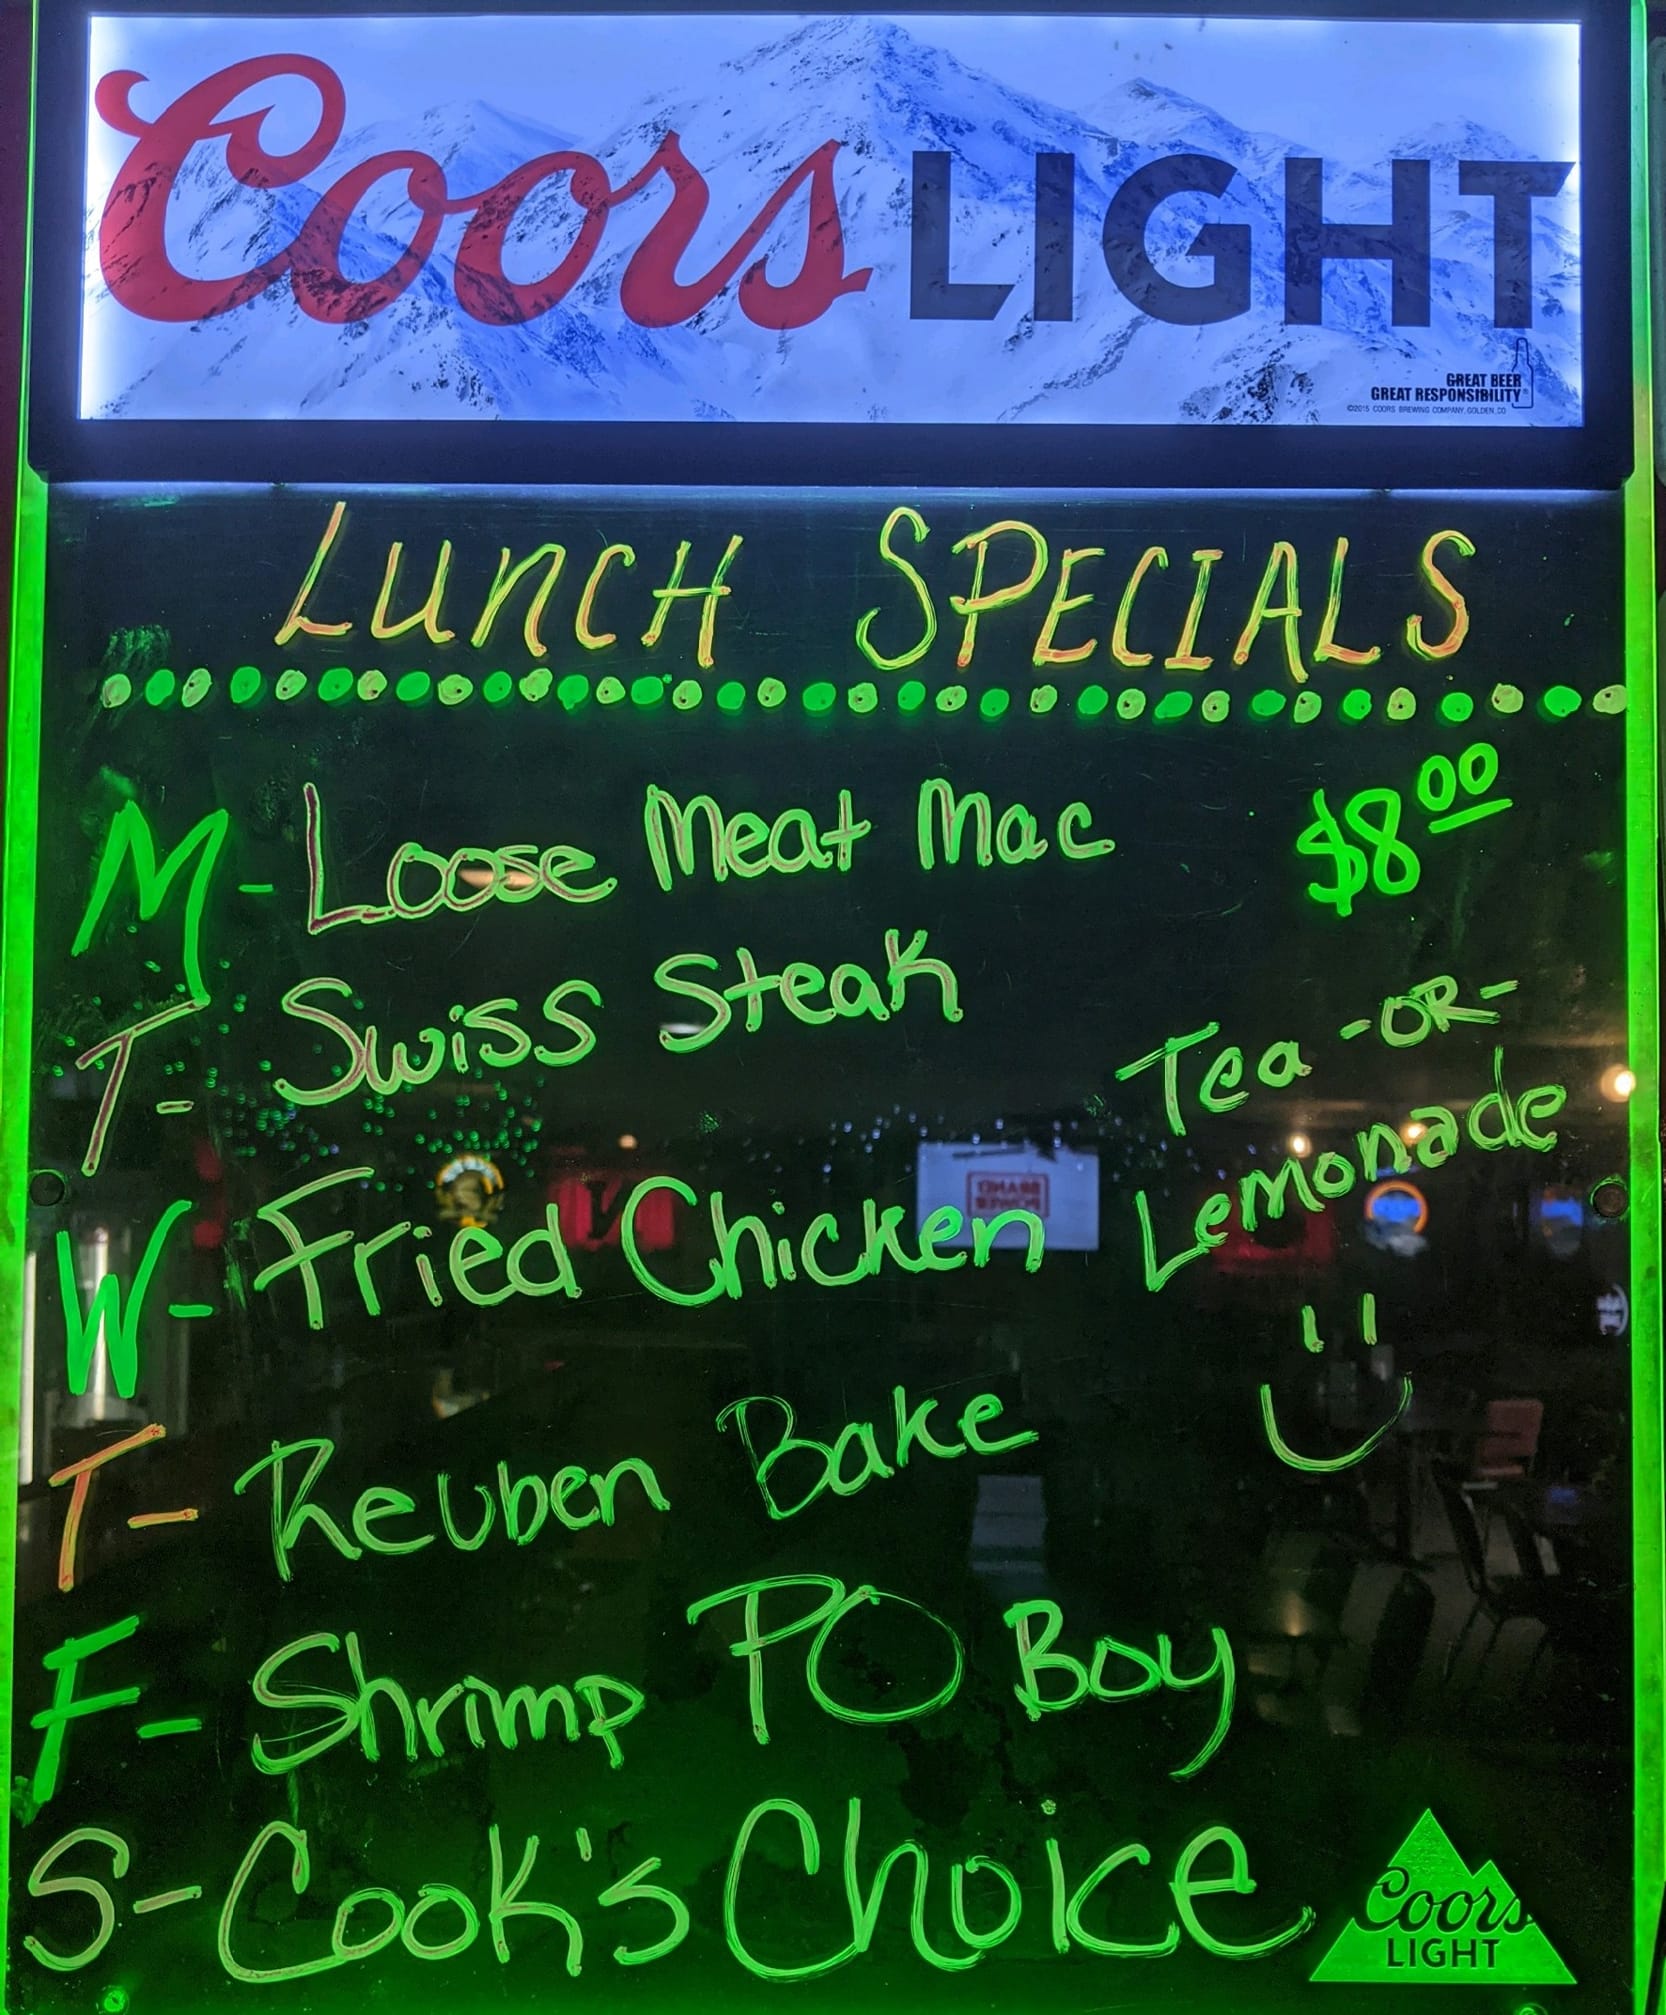 Coors LIGHT
GREAT BEER
GREAT RESPONSIBILITY®
©2015 COORS BREWING COMPANY, GOLDEN, CO
LUNCH SPECIALS
M- Loose Meat Mac $8.00
T- Swiss Steak
Tea -OR-
Lemonade
W- Fried Chicken
T- Reuben Bake
F- Shrimp PO Boy
S- Cook's Choice
Coors
LIGHT